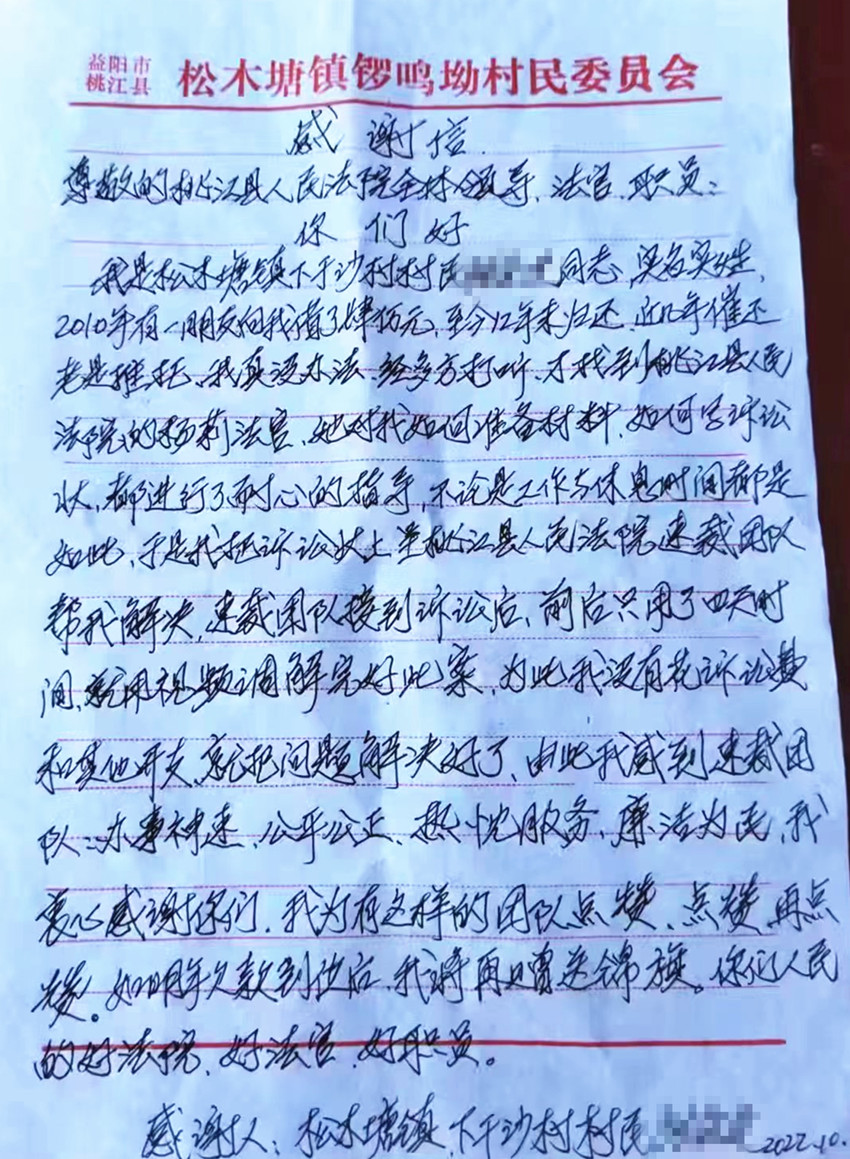 益阳市
桃江县 松木塘镇锣鸣坳村民委员会
感谢信
尊敬的桃江县人民法院全体领导、法官、职员：
你们好
我是松木塘镇下干沙村村民 同志，实名实姓，
2010年有一朋友向我借了肆万元，至今12年未归还，近几年催还
老是推托，我真没办法，经多方打听，才找到桃江县人民
法院的杨莉法官，她对我如何准备材料，如何写诉讼
状，都进行了耐心的指导，不论是工作与休息时间都是
如此，于是我把诉讼状上呈桃江县人民法院速裁团队
帮我解决，速裁团队接到诉讼后，前后只用了四天时
间，就用视频调解完好此案，为此我没有花诉讼费
和其他开支，就把问题解决好了，由此我感到速裁团
队：办事神速，公平公正，热忱服务，廉洁为民，我
衷心感谢你们，我为有这样的团队点赞、点赞、再点
赞。如明年欠款到位后，我将再次赠送锦旗。你们人民
的好法院、好法官、好职员。
感谢人：松木塘镇下干沙村村民 2022.10.